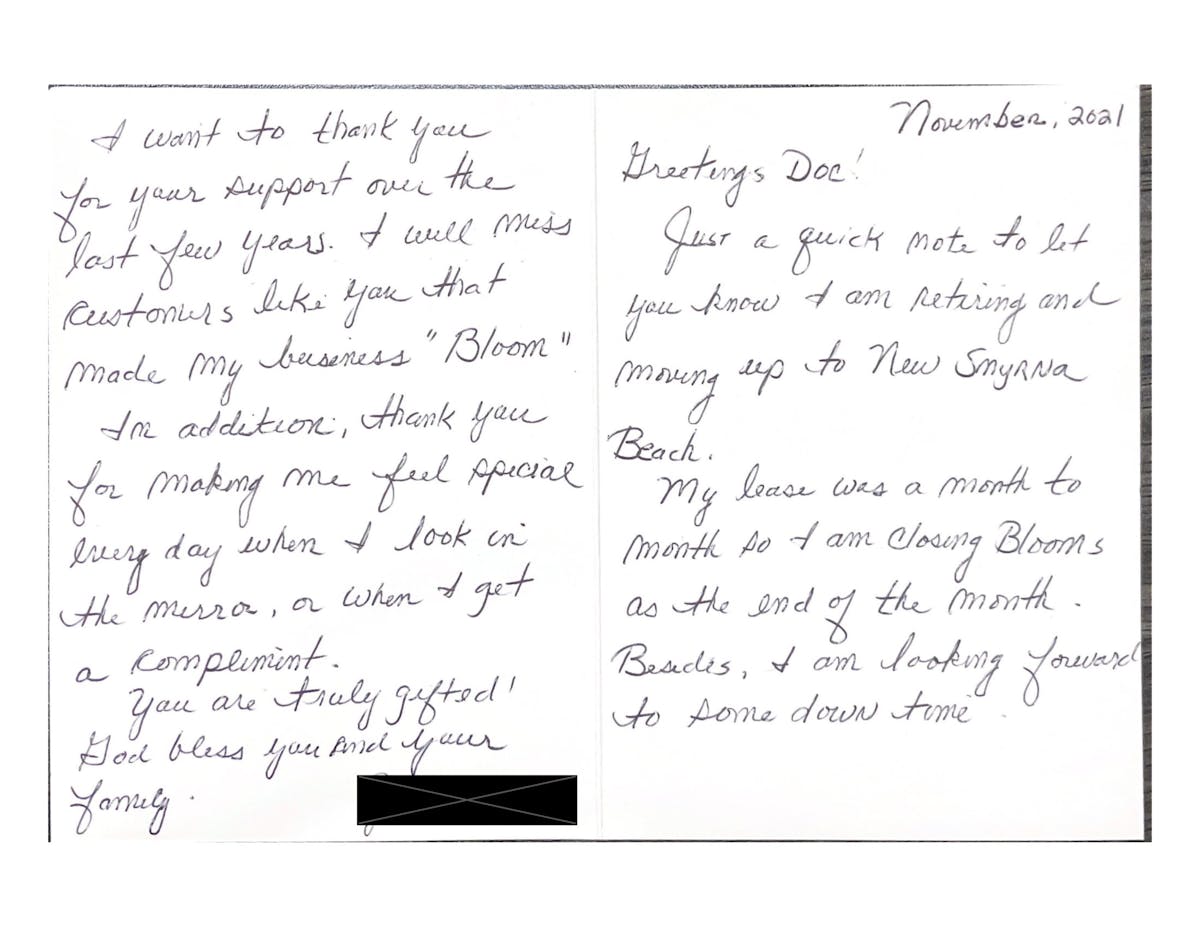 November, 2021
Greetings Doc!
Just a quick note to let
you know I am retiring and
moving up to New Smyrna
Beach.
My lease was a month to
month so I am closing Blooms
as the end of the month.
Besides, I am looking forward
to some down time.
I want to thank you
for your support over the
last few years. I will miss
customers like you that
made my business "Bloom"
In addition, thank you
for making me feel special
every day when I look in
the mirror, or when I get
a compliment.
You are truly gifted!
God bless you and your
family.